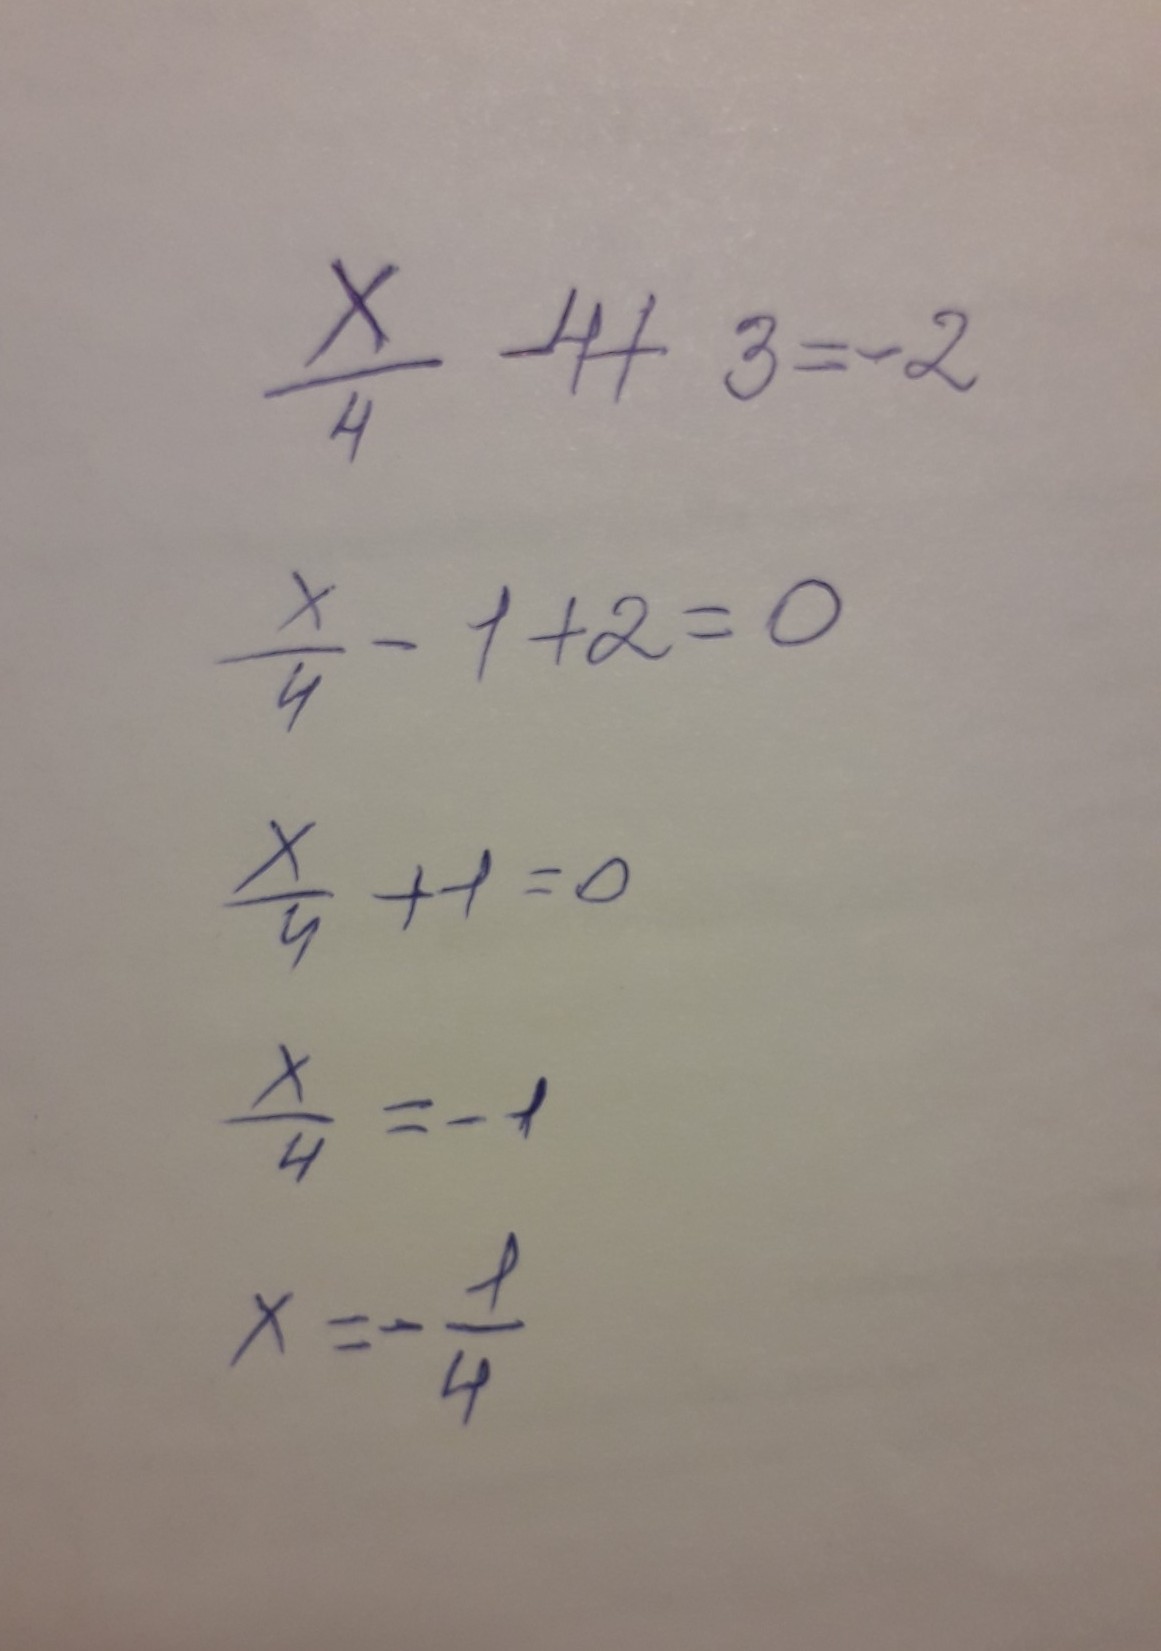 x/4 - 4 + 3 = -2
x/4 - 1 + 2 = 0
x/4 + 1 = 0
x/4 = -1
x = - 1/4